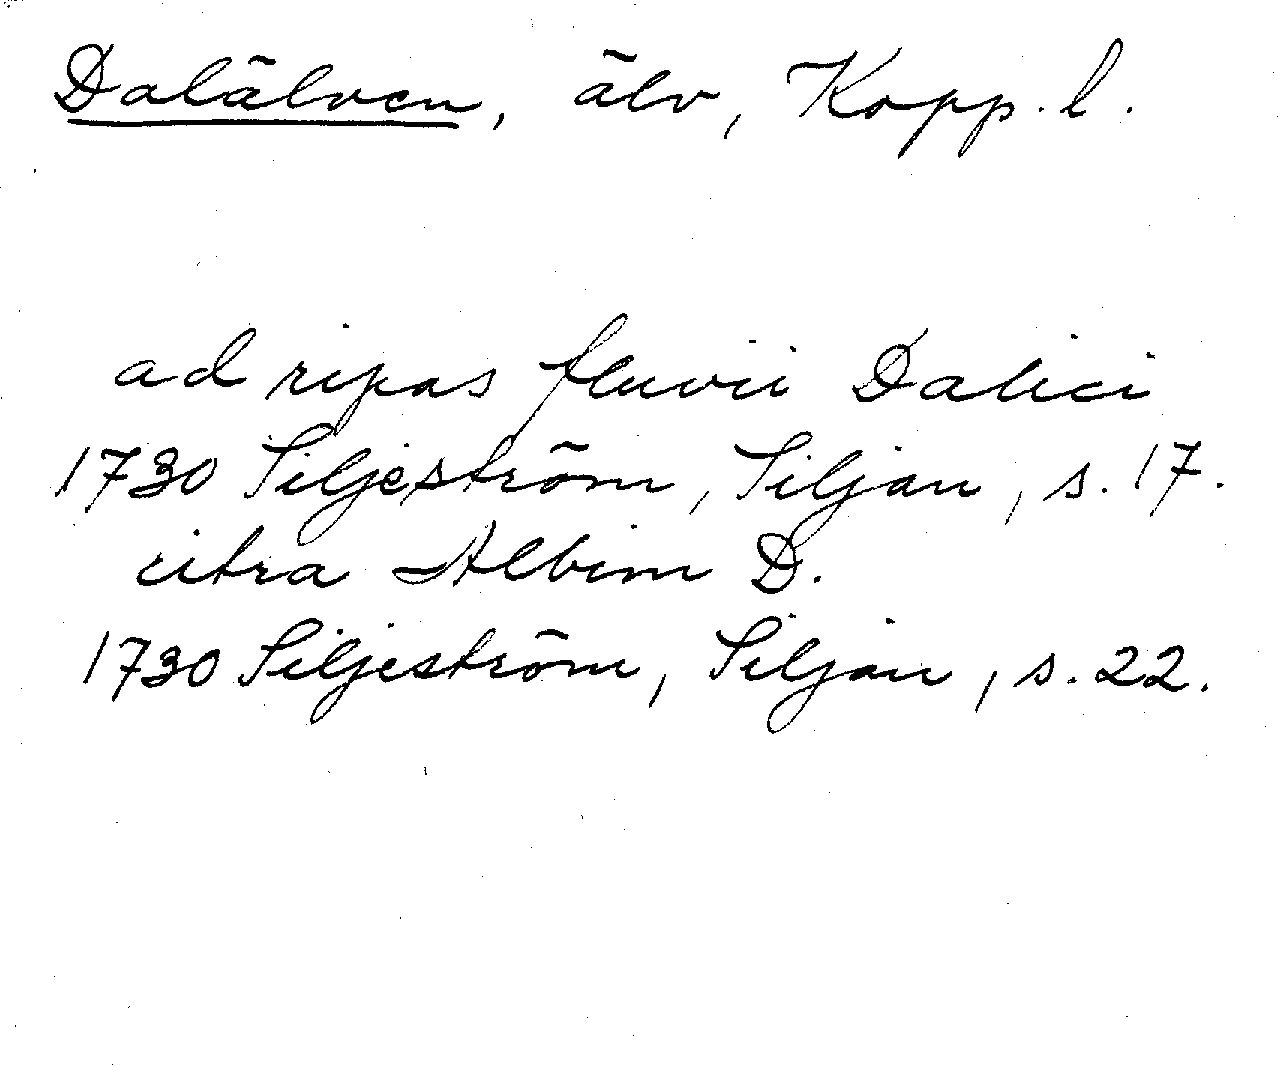 Dalälven, älv, Kopp. l.
ad ripas fluvii Dalici
1730 Siljeström, Siljan, s. 17.
citra Albim D.
1730 Siljeström, Siljan, s. 22.